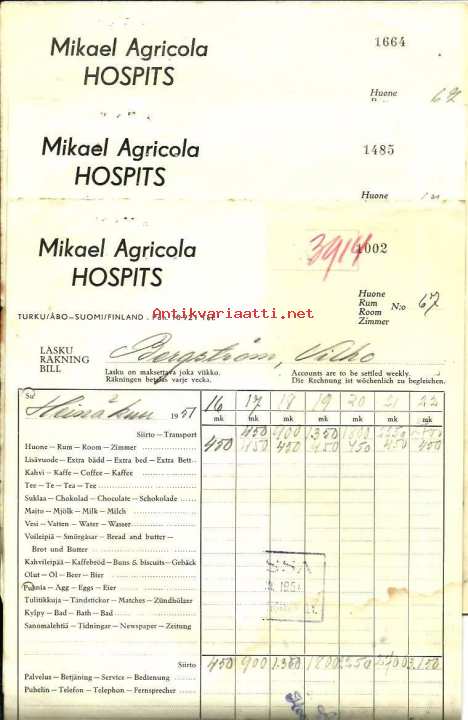 Mikael Agricola
HOSPITS
1664
Huone
Mikael Agricola
HOSPITS
1485
Huone
Mikael Agricola
HOSPITS
3914
1002
Huone
Rum
Room
Zimmer
N:o 67
TURKU/ÅBO-SUOMI/FINLAND.
Antikvariaatti.net
LASKU
RÄKNING
BILL
Bergström, Vilho
Lasku on maksettava joka viikko.
Räkningen betalas varje vecka.
Accounts are to be settled weekly.
Die Rechnung ist wöchentlich zu begleichen.
Heinäkuu 1951 16 17 18 19 20 21 22
mk mk mk mk mk mk mk
Siirto – Transport 450 900 1350 1800
Huone – Rum – Room – Zimmer 450 450 450 450 450 450 450
Lisävuode – Extra bädd – Extra bed – Extra Bett
Kahvi – Kaffe – Coffee – Kaffee
Tee – Te – Tea – Tee
Suklaa – Chokolad – Chocolate – Schokolade
Maito – Mjölk – Milk – Milch
Vesi – Vatten – Water – Wasser
Voileipiä – Smörgåsar – Bread and butter –
Brot und Butter
Kahvileipää – Kaffebröd – Buns & biscuits – Gebäck
Olut – Öl – Beer – Bier
Munia – Ägg – Eggs – Eier
Tulitikkuja – Tändstickor – Matches – Zündhölzer
Kylpy – Bad – Bath – Bad
Sanomalehtiä – Tidningar – Newspaper – Zeitung
Siirto 450 900 1.350 1800 3.150
Palvelus – Betjäning – Service – Bedienung
Puhelin – Telefon – Telephon – Fernsprecher